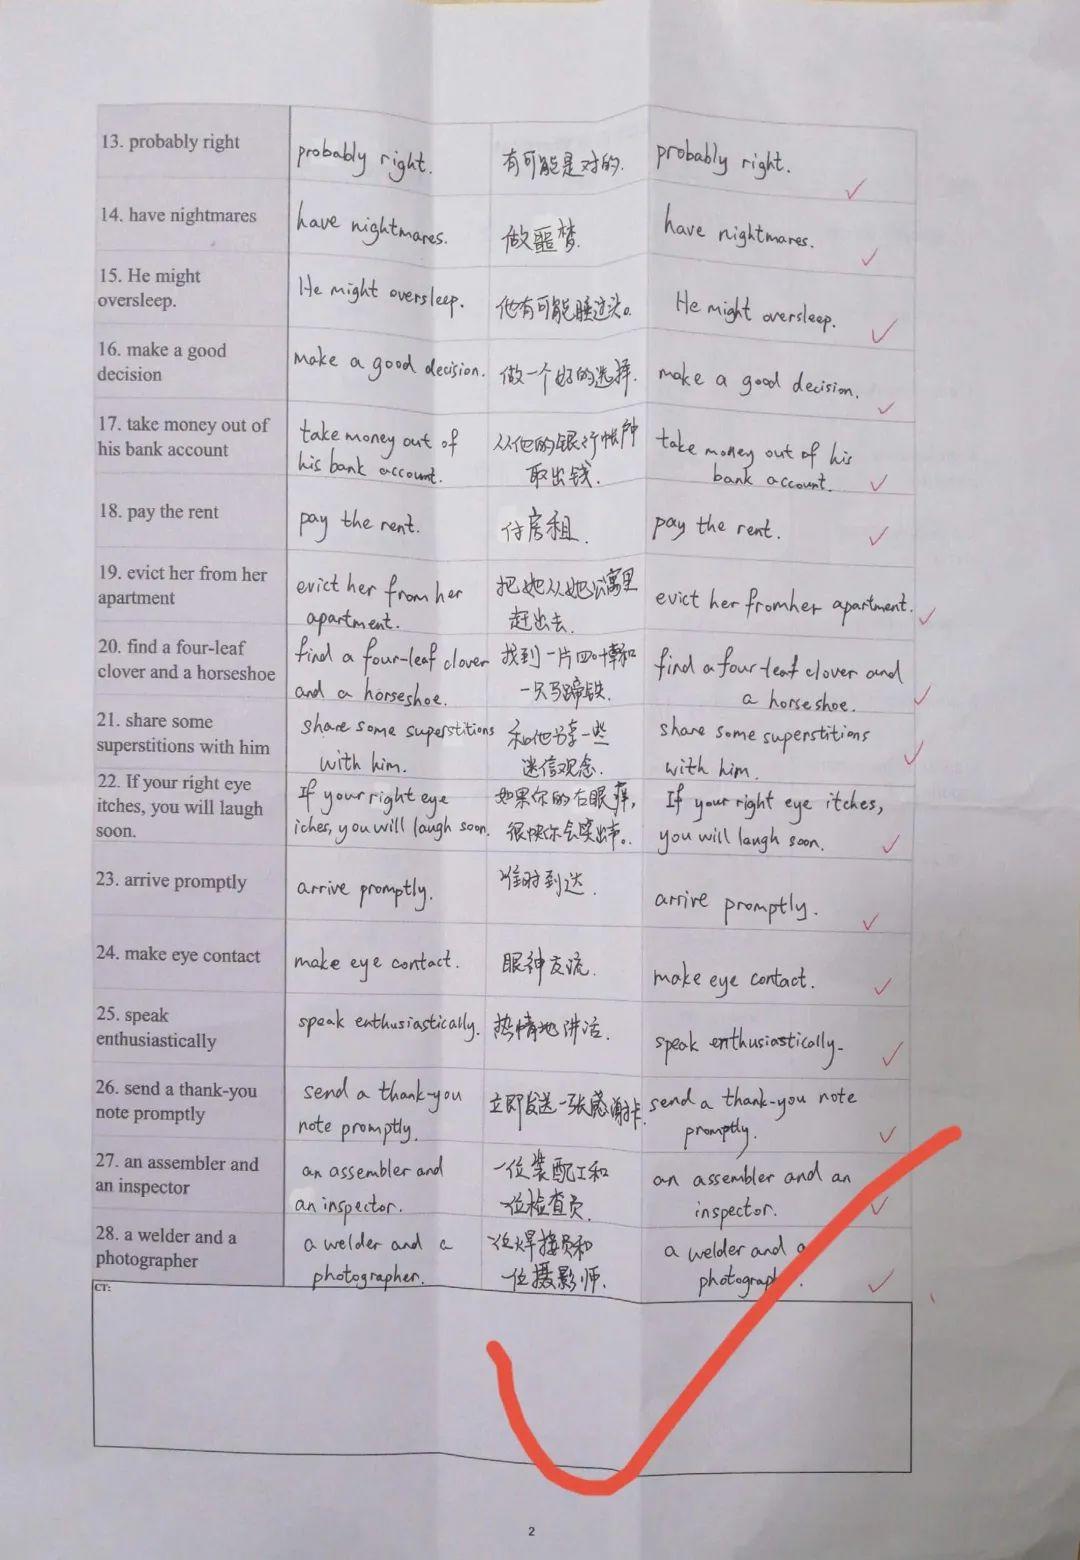 13. probably right
probably right.
有可能是对的.
probably right.
14. have nightmares
have nightmares.
做噩梦.
have nightmares.
15. He might
oversleep.
He might oversleep.
他有可能睡过头。
He might oversleep.
16. make a good
decision
make a good decision.
做一个好的选择.
make a good decision.
17. take money out of
his bank account
take money out of
his bank account.
从他的银行帐户
取出钱.
take money out of his
bank account.
18. pay the rent
pay the rent.
付房租.
pay the rent.
19. evict her from her
apartment
evict her from her
apartment.
把她从她公寓里
赶出去.
evict her from her apartment.
20. find a four-leaf
clover and a horseshoe
find a four-leaf clover
and a horseshoe.
找到一片四叶草和
一只马蹄铁.
find a four-leaf clover and
a horseshoe.
21. share some
superstitions with him
share some superstitions
with him.
和他分享一些
迷信观念.
share some superstitions
with him.
22. If your right eye
itches, you will laugh
soon.
If your right eye
iches, you will laugh soon.
如果你的右眼痒,
很快你会笑出声。
If your right eye itches,
you will laugh soon.
23. arrive promptly
arrive promptly.
准时到达.
arrive promptly.
24. make eye contact
make eye contact.
眼神交流.
make eye contact.
25. speak
enthusiastically
speak enthusiastically.
热情地讲话.
speak enthusiastically.
26. send a thank-you
note promptly
send a thank-you
note promptly.
立即发送一张感谢卡.
send a thank-you note
promptly.
27. an assembler and
an inspector
an assembler and
an inspector.
一位装配工和
一位检查员.
an assembler and an
inspector.
28. a welder and a
photographer
a welder and a
photographer.
一位焊接员和
一位摄影师.
a welder and a
CT:
2